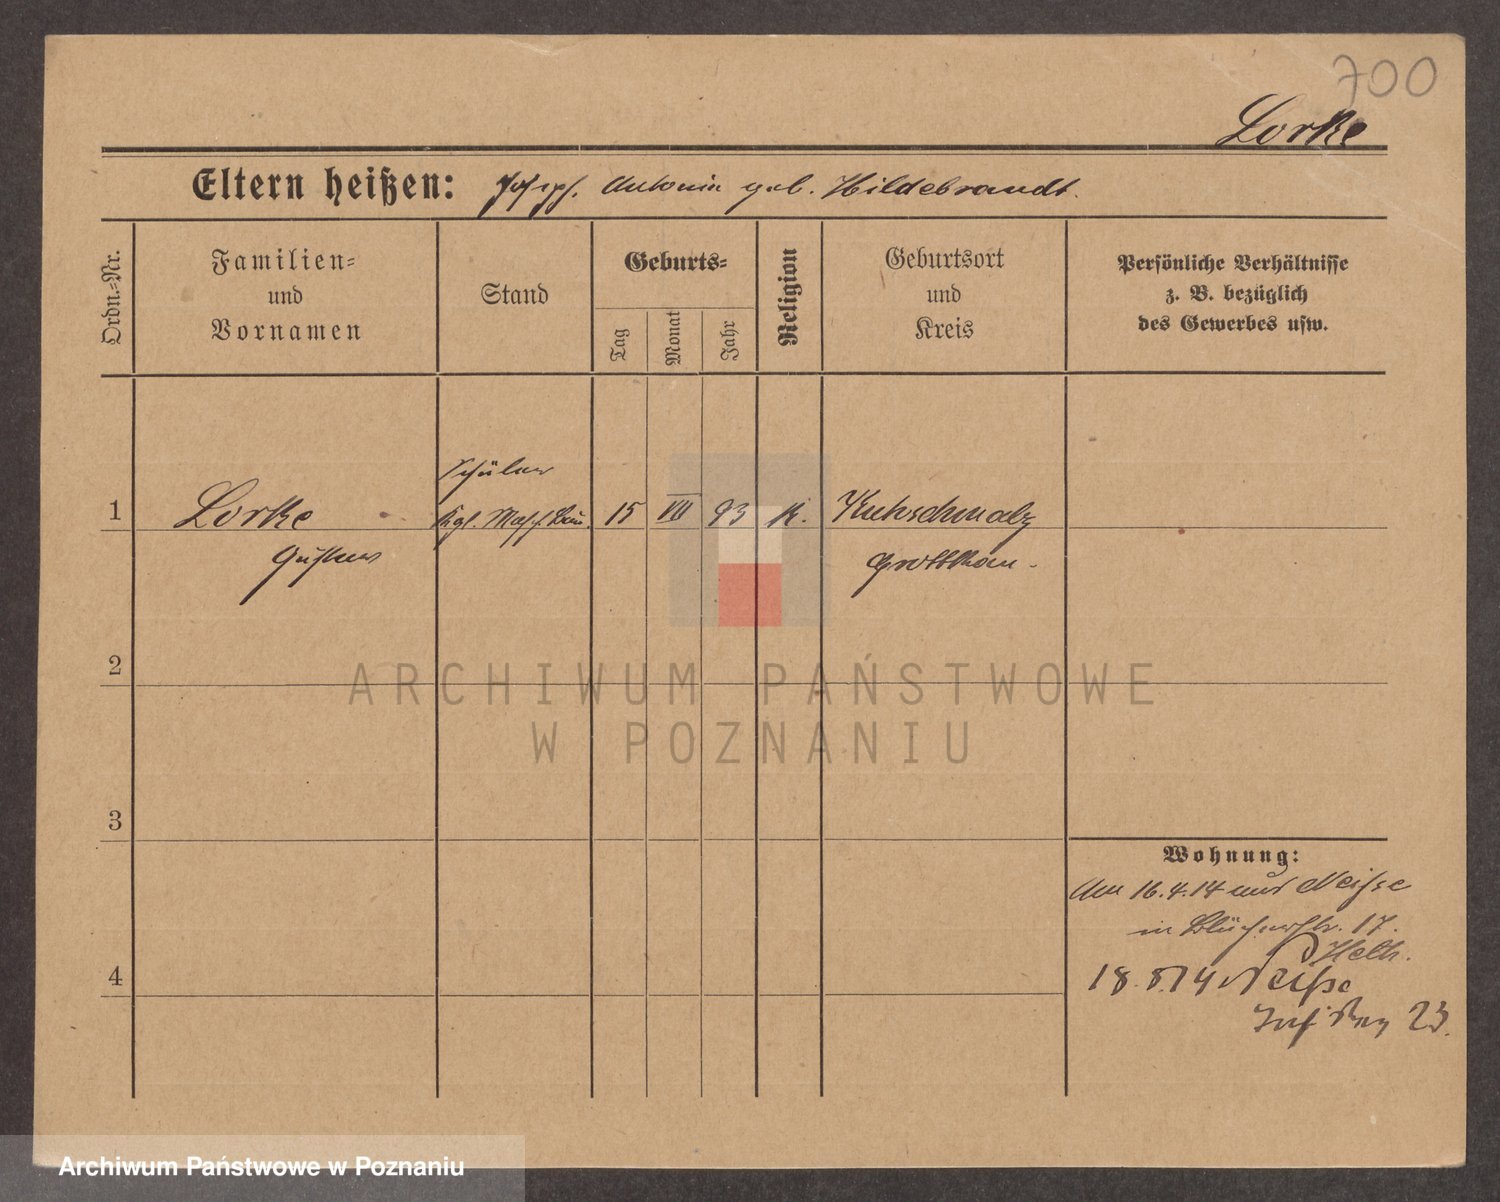 700
Lorke
Eltern heißen: Joseph. Antonia geb. Hildebrandt.
Ordn.-Nr.
Familien-
und
Vornamen
Stand
Geburts-
Tag
Monat
Jahr
Religion
Geburtsort
und
Kreis
Persönliche Verhältnisse
z. B. bezüglich
des Gewerbes usw.
Schüler
1 Lorke Kgl. Masch. Bau. 15 VII 93 k. Kuhschmalz
Gustav Grottkau.
2
3
4
Wohnung:
Am 16.4.14 aus Neisse
in Blücherstr. 17.
Helth.
18.8.14 Neisse
Inf. Reg 23.
ARCHIWUM PAŃSTWOWE
W POZNANIU
Archiwum Państwowe w Poznaniu